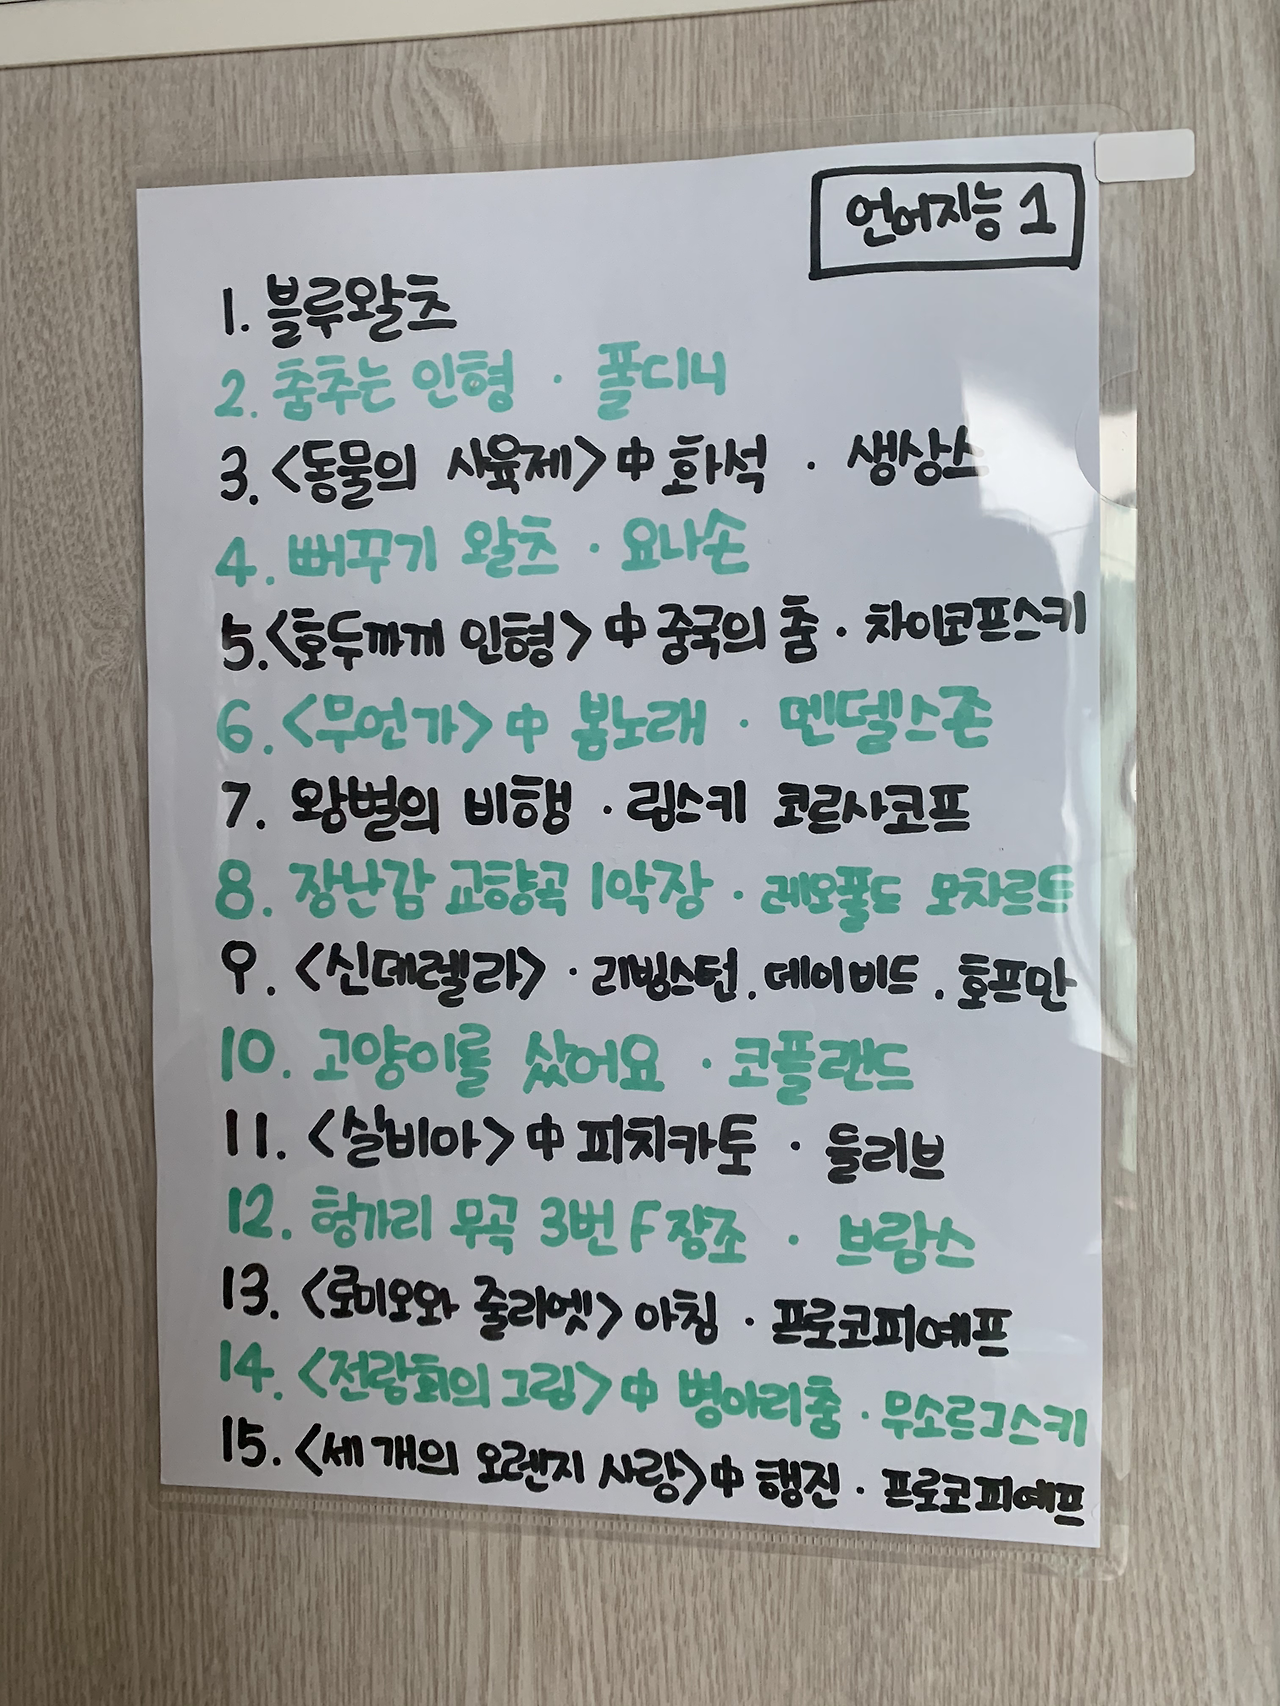 언어지능 1
1. 블루왈츠
2. 춤추는 인형 · 폴디니
3. <동물의 사육제> 中 화석 · 생상스
4. 뻐꾸기 왈츠 · 요나손
5. <호두까끼 인형> 中 중국의 춤 · 차이코프스키
6. <무언가> 中 봄노래 · 멘델스존
7. 왕벌의 비행 · 림스키 코르사코프
8. 장난감 교향곡 1악장 · 레오폴드 모차르트
9. <신데렐라> · 리빙스턴. 데이비드. 호프만
10. 고양이를 샀어요 · 코플랜드
11. <실비아> 中 피치카토 · 들리브
12. 헝가리 무곡 3번 F장조 · 브람스
13. <로미오와 줄리엣> 아침 · 프로코피예프
14. <전람회의 그림> 中 병아리춤 · 무소르그스키
15. <세 개의 오렌지 사랑> 中 행진 · 프로코피예프